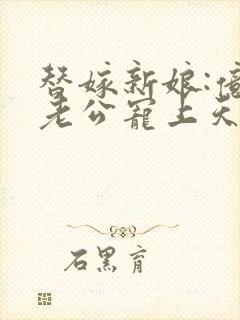 替嫁新娘:億
老公寵上天
石黑育